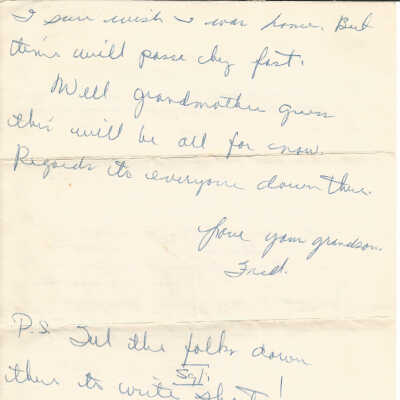 I sure wish I was home. But
time will passe by fast.
Well grandmother guess
this will be all for now.
Regards to everyone down there.
Love your grandson.
Fred.
P.S. Tell the folks down
there to write
Sgt.